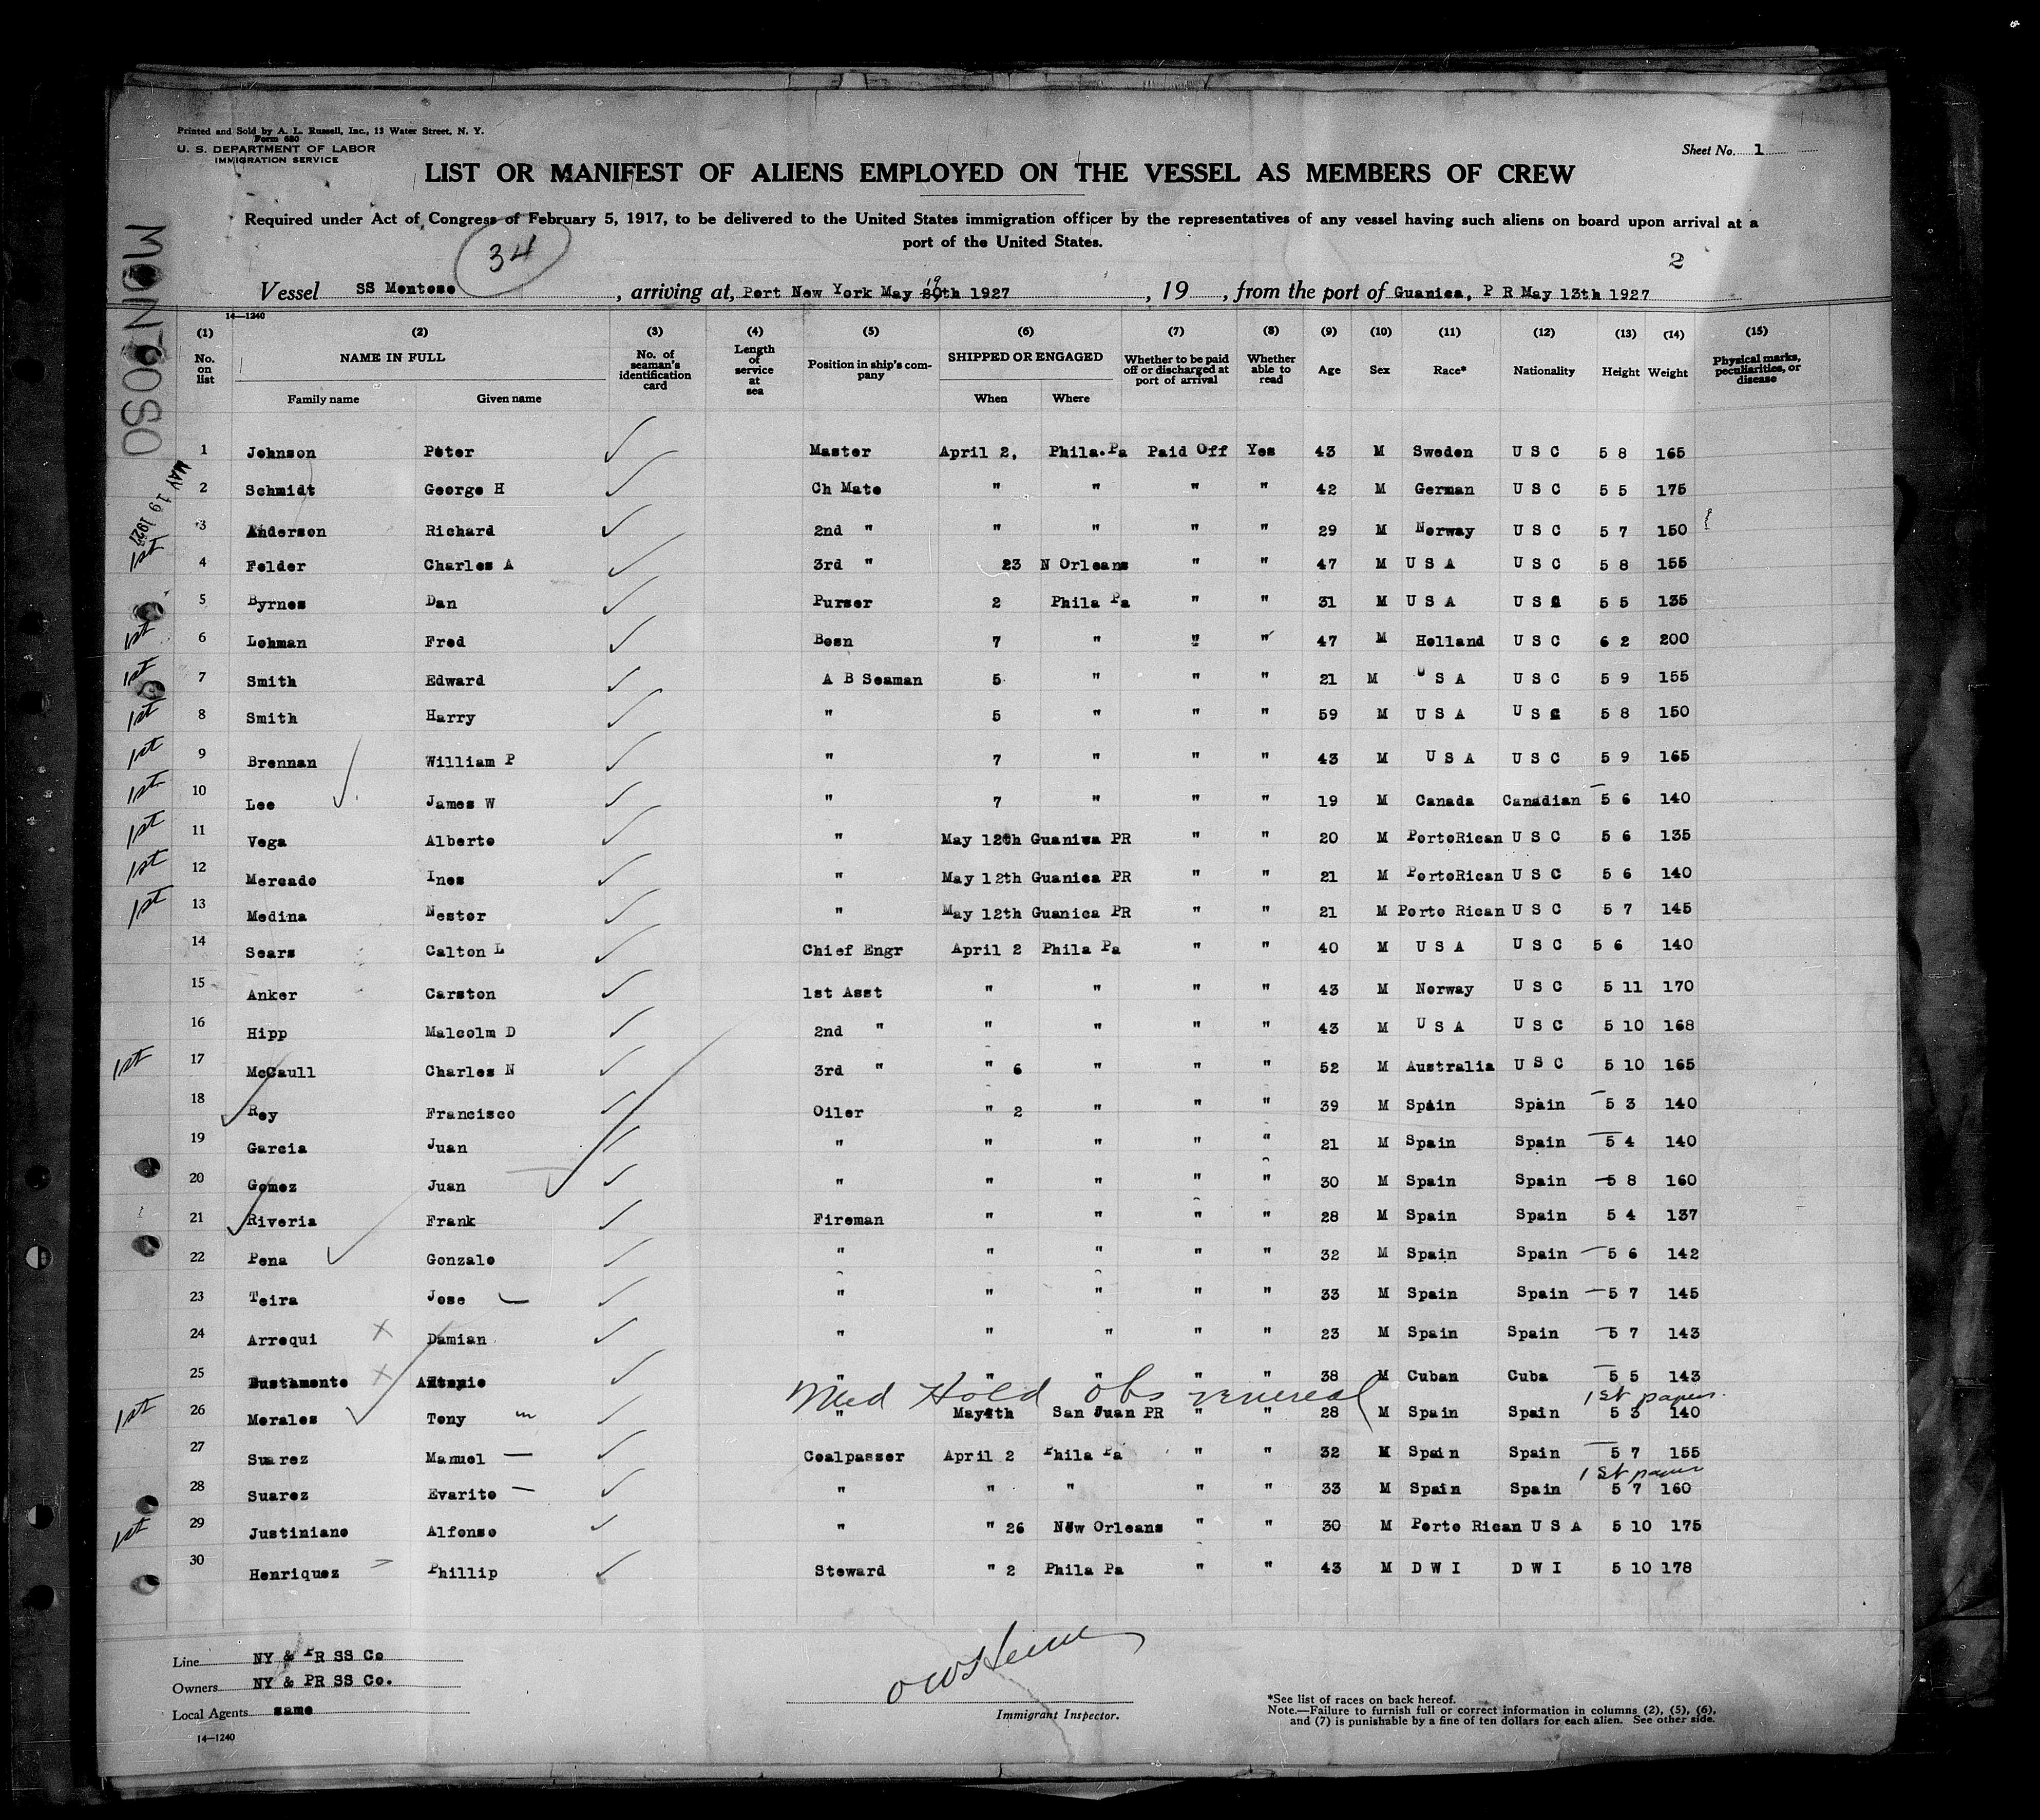 Printed and Sold by A. L. Russell, Inc., 13 Water Street, N. Y.
Form 680
U. S. DEPARTMENT OF LABOR
IMMIGRATION SERVICE
Sheet No. 1
LIST OR MANIFEST OF ALIENS EMPLOYED ON THE VESSEL AS MEMBERS OF CREW
Required under Act of Congress of February 5, 1917, to be delivered to the United States immigration officer by the representatives of any vessel having such aliens on board upon arrival at a
port of the United States.
34
2
MONTOSO
MAY 19 1927
Vessel SS Montoso, arriving at, Port New York May 20th 19 1927, 19, from the port of Guanica, P R May 13th 1927
14—1240
(1) (2) (3) (4) (5) (6) (7) (8) (9) (10) (11) (12) (13) (14) (15)
No. on list NAME IN FULL No. of seaman's identification card Length of service at sea Position in ship's company SHIPPED OR ENGAGED Whether to be paid off or discharged at port of arrival Whether able to read Age Sex Race* Nationality Height Weight Physical marks, peculiarities, or disease
Family name Given name When Where
1 Johnson Peter Master April 2, Phila.Pa Paid Off Yes 43 M Sweden U S C 5 8 165
2 Schmidt George H Ch Mate " " " " 42 M German U S C 5 5 175
3 Anderson Richard 2nd " " " " " 29 M Norway U S C 5 7 150
1st 4 Felder Charles A 3rd " 23 N Orleans " " 47 M U S A U S C 5 8 155
5 Byrnes Dan Purser 2 Phila Pa " " 31 M U S A U S C 5 5 135
1st 6 Lohman Fred Bosn 7 " " " 47 M Holland U S C 6 2 200
1st 7 Smith Edward A B Seaman 5 " " " 21 M U S A U S C 5 9 155
1st 8 Smith Harry " 5 " " " 59 M U S A U S C 5 8 150
1st 9 Brennan William P " 7 " " " 43 M U S A U S C 5 9 165
1st 10 Lee James W " 7 " " " 19 M Canada Canadian 5 6 140
1st 11 Vega Alberto " May 12th Guanica PR " " 20 M PortoRican U S C 5 6 135
1st 12 Mercado Ines " May 12th Guanica PR " " 21 M PortoRican U S C 5 6 140
1st 13 Medina Nestor " May 12th Guanica PR " " 21 M Porto Rican U S C 5 7 145
14 Sears Calton L Chief Engr April 2 Phila Pa " " 40 M U S A U S C 5 6 140
15 Anker Carston 1st Asst " " " " 43 M Norway U S C 5 11 170
16 Hipp Malcolm D 2nd " " " " " 43 M U S A U S C 5 10 168
1st 17 McCaull Charles N 3rd " " 6 " " " 52 M Australia U S C 5 10 165
18 Rey Francisco Oiler " 2 " " " 39 M Spain Spain 5 3 140
19 Garcia Juan " " " " " 21 M Spain Spain 5 4 140
20 Gomez Juan " " " " " 30 M Spain Spain 5 8 160
21 Riveria Frank Fireman " " " " 28 M Spain Spain 5 4 137
22 Pena Gonzalo " " " " " 32 M Spain Spain 5 6 142
23 Teira Jose " " " " " 33 M Spain Spain 5 7 145
24 Arrequi Damian " " " " " 23 M Spain Spain 5 7 143
25 Bustamente " " " " " 38 M Cuban Cuba 5 5 143
Med Hold obs venereal 1st papers.
1st 26 Morales Tony " May4th San Juan PR " " 28 M Spain Spain 5 3 140
27 Suarez Manuel Coalpasser April 2 Phila Pa " " 32 M Spain Spain 5 7 155
1st papers
28 Suarez Evarito " " " " " 33 M Spain Spain 5 7 160
1st 29 Justiniano Alfonso " " 26 New Orleans " " 30 M Porto Rican U S A 5 10 175
30 Henriquez Phillip Steward " 2 Phila Pa " " 43 M D W I D W I 5 10 178
Line NY & PR SS Co
Owners NY & PR SS Co.
Local Agents same
14—1240
Immigrant Inspector.
*See list of races on back hereof.
Note.—Failure to furnish full or correct information in columns (2), (5), (6),
and (7) is punishable by a fine of ten dollars for each alien. See other side.